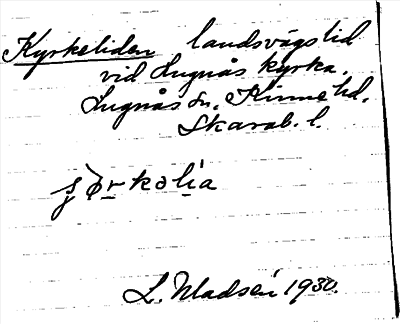 Kyrkeliden landsvägslid
vid Lugnås kyrka.
Lugnås sn, Kinne hd.
Skarab. l.
L. Madsén 1930.